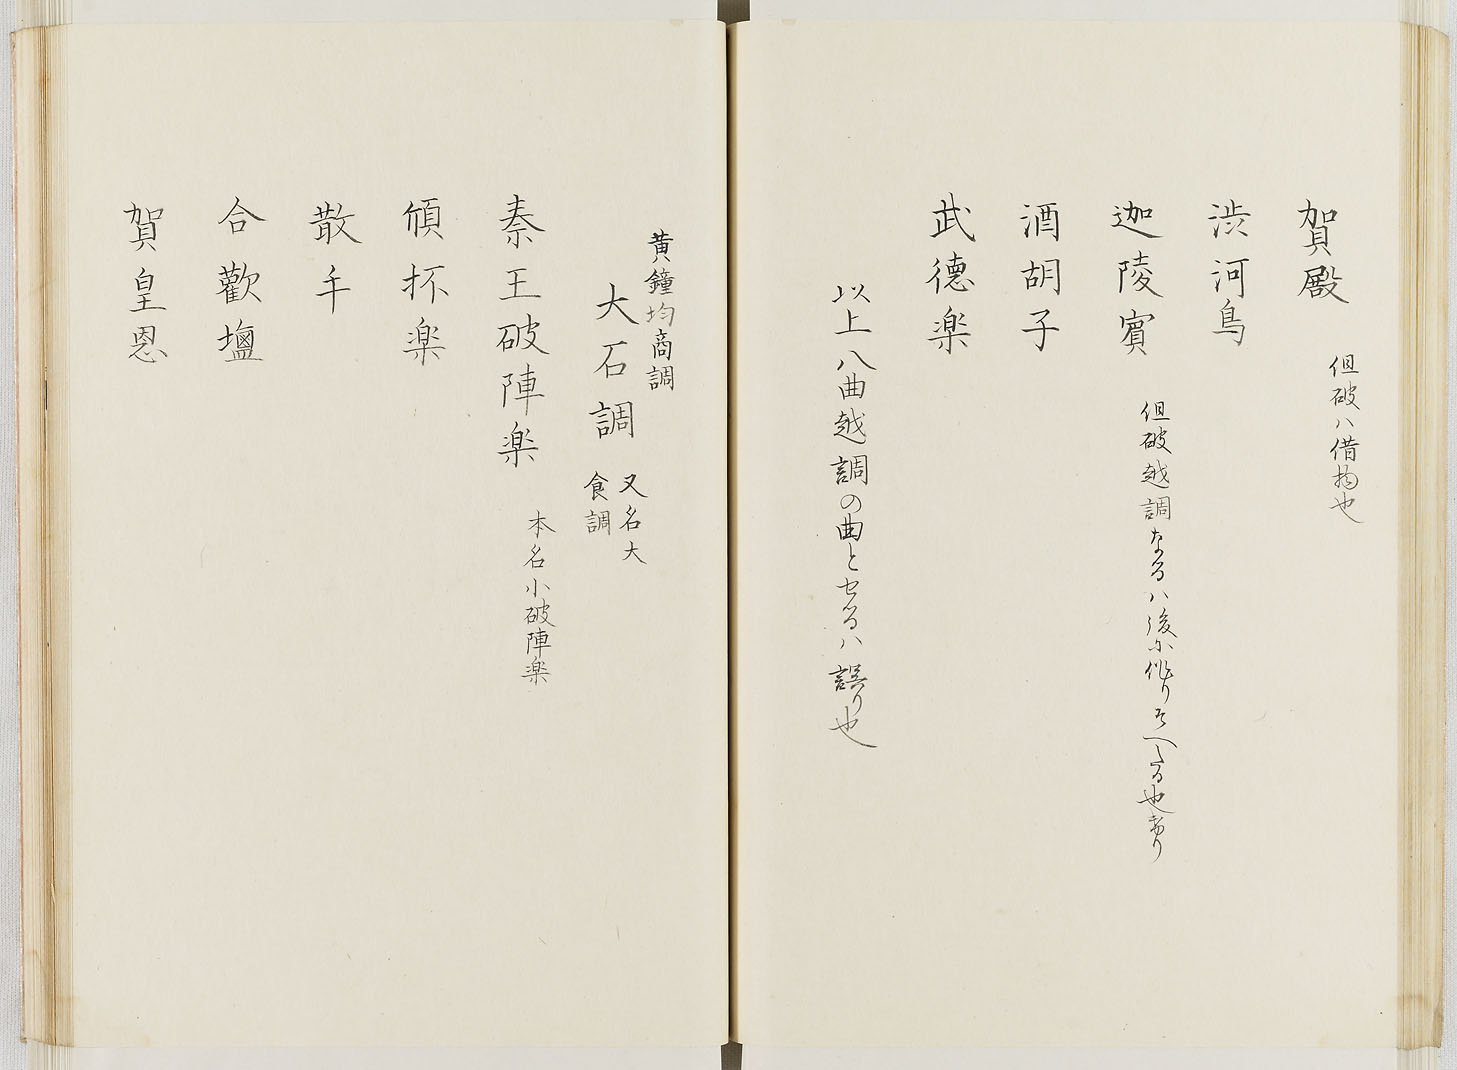 賀殿
但破ハ借物也
渋河鳥
迦陵賓
但破越調なるハ後に作りそへたる也けり
酒胡子
武徳楽
以上八曲越調の曲とせるハ誤り也
黄鐘均商調
大石調
又名大
食調
秦王破陣楽
本名小破陣楽
傾坏楽
散手
合歡塩
賀皇恩